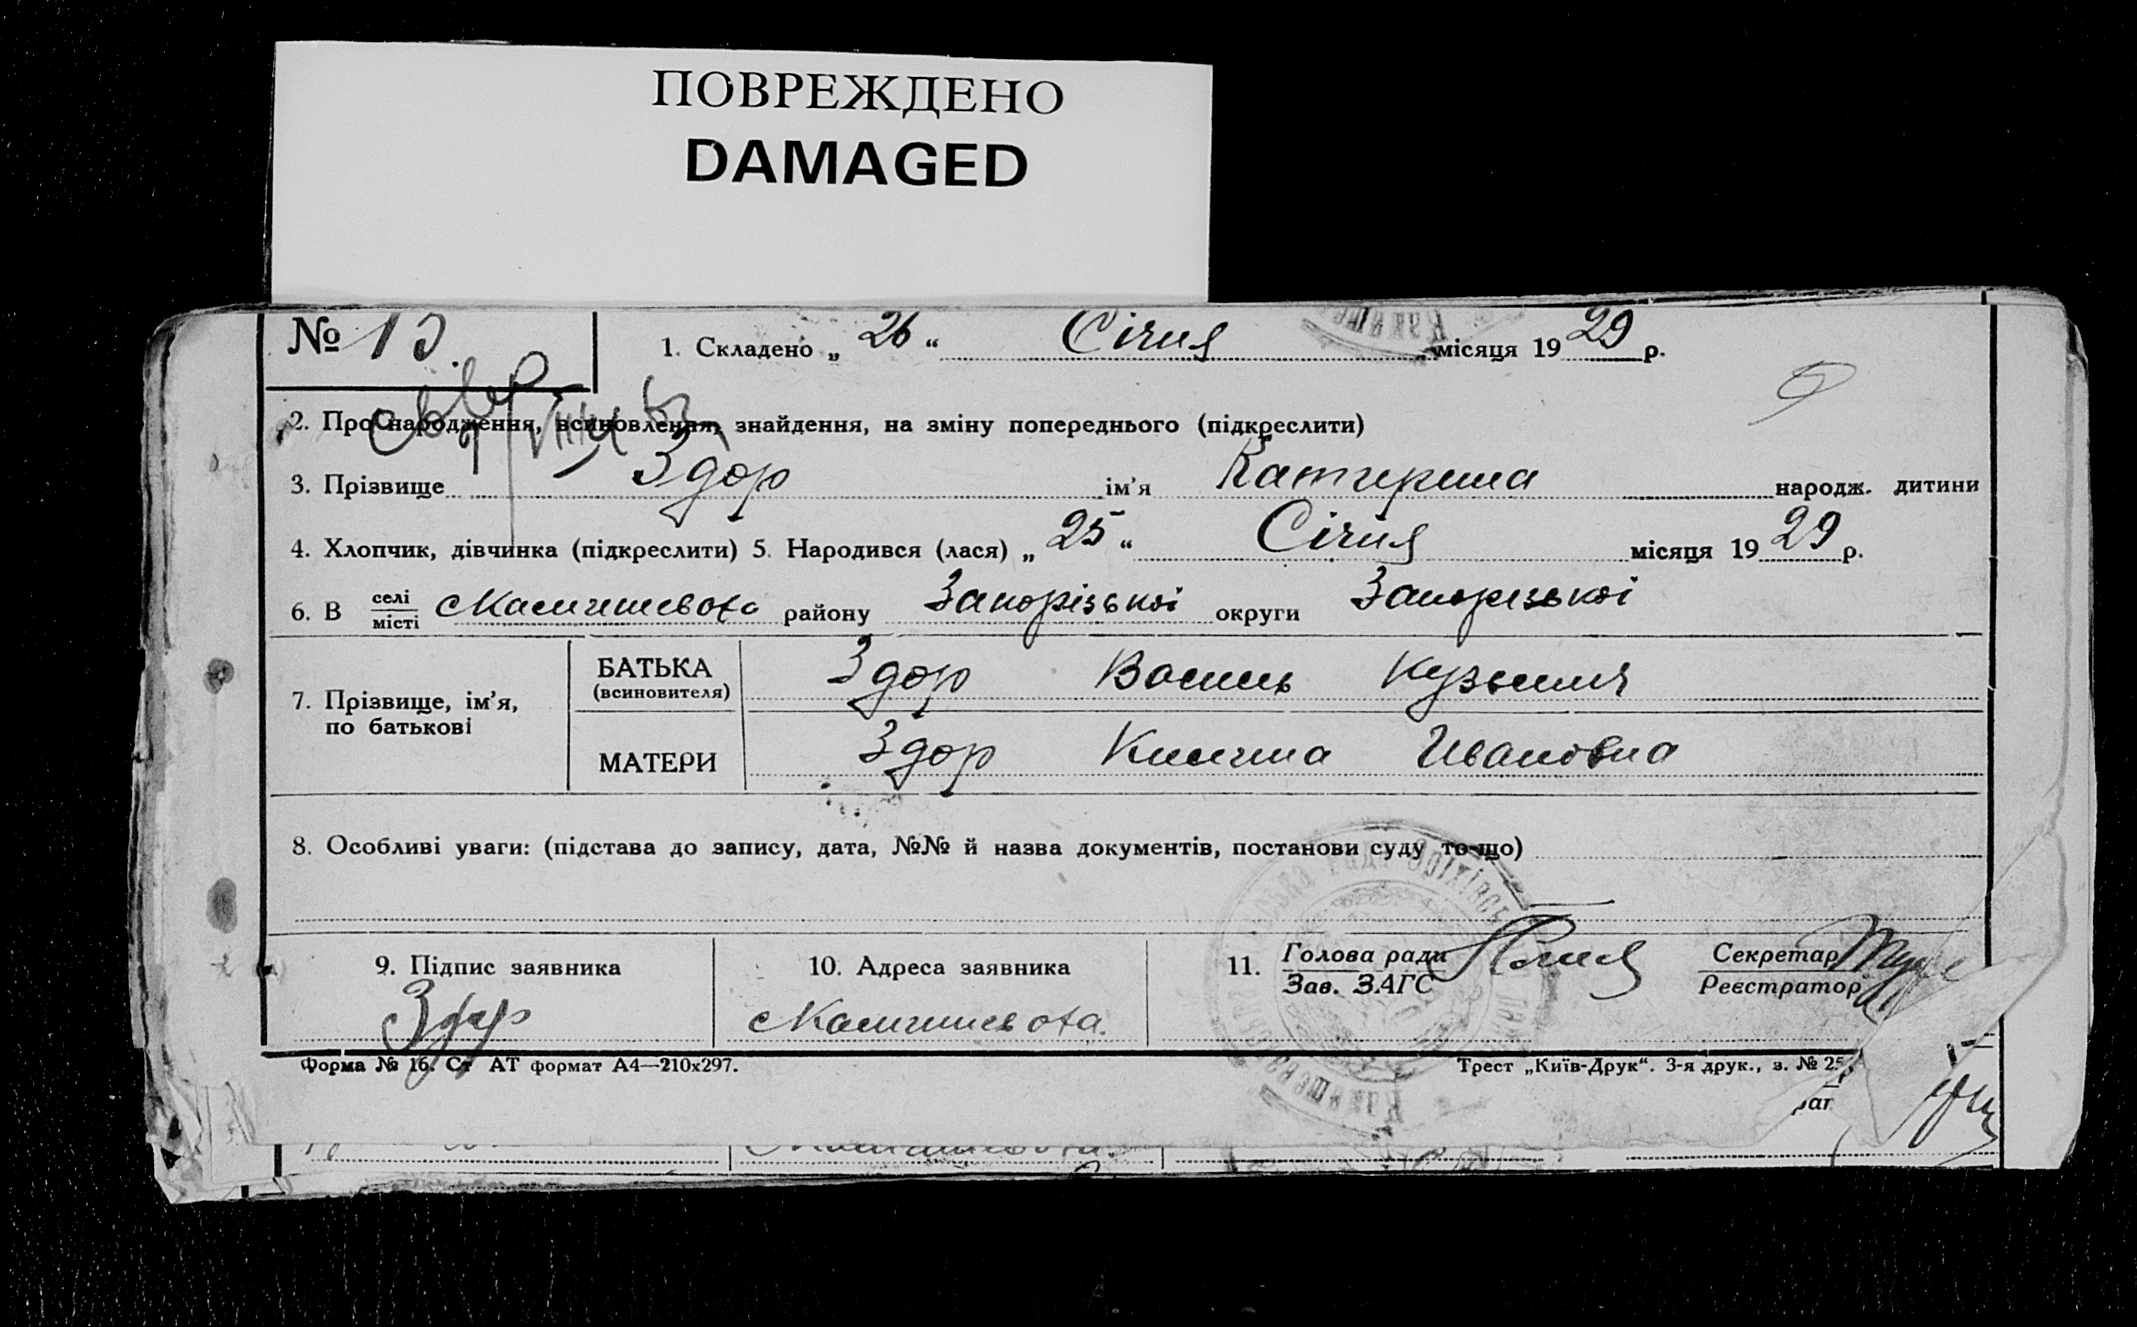 ПОВРЕЖДЕНО
DAMAGED
№ 13.
1. Складено „ 26 “ Січня місяця 19 29 р.
2. Про народження, всиновлення, знайдення, на зміну попереднього (підкреслити)
3. Прізвище Здор ім'я Катерина народж. дитини
4. Хлопчик, дівчинка (підкреслити) 5. Народився (лася) „ 25 “ Січня місяця 19 29 р.
6. В селі місті району Запорізької округи Запорізької
7. Прізвище, ім'я, по батькові
БАТЬКА (всиновителя) Здор Василь Кузьмич
МАТЕРИ Здор Ивановна
8. Особливі уваги: (підстава до запису, дата, №№ й назва документів, постанови суду то-що)
9. Підпис заявника
Здор
10. Адреса заявника
11. Голова ради
Зав. ЗАГС
Секретар
Реєстратор
Форма № 16. Ст АТ формат А4—210х297.
Трест „Київ-Друк“. 3-я друк., з. № 25